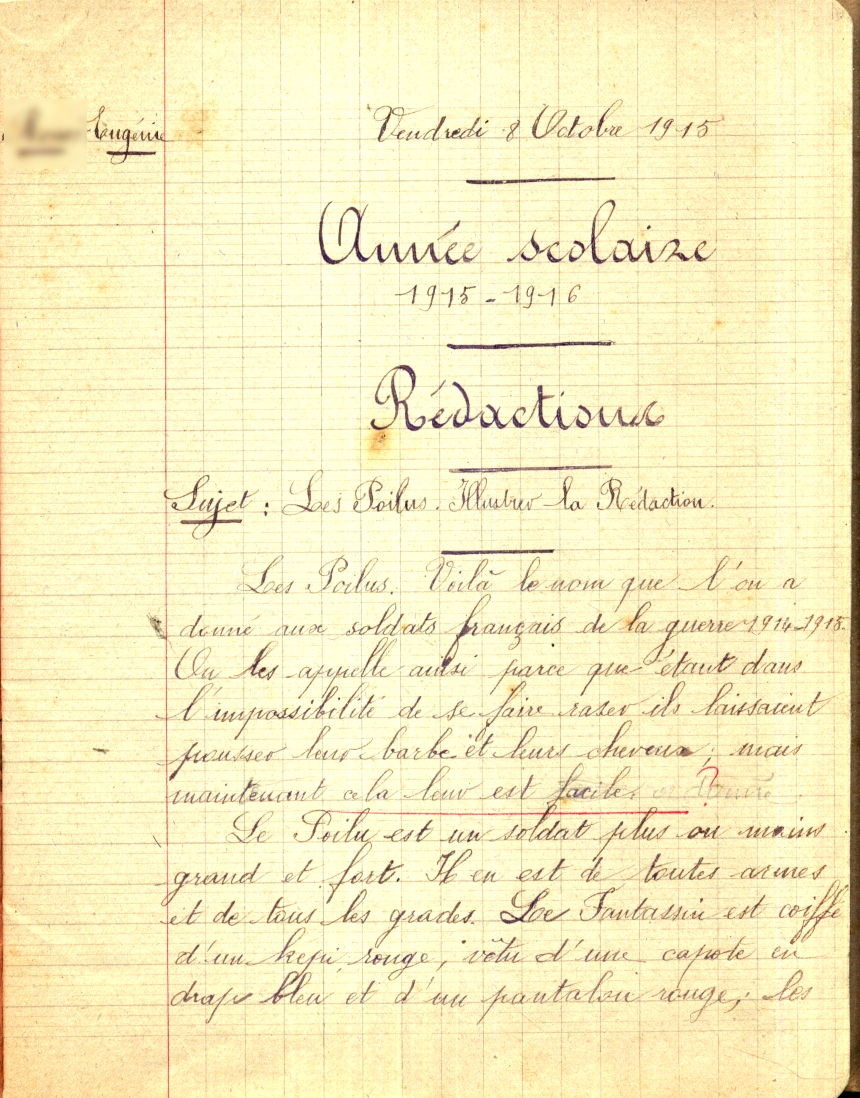 Eugénie
Vendredi 8 Octobre 1915
Année scolaire
1915-1916
Rédactions
Sujet : Les Poilus. Illustrer la Rédaction.
Les Poilus. Voilà le nom que l'on a
donné aux soldats français de la guerre 1914-1915.
On les appelle ainsi parce que étant dans
l'impossibilité de se faire raser ils laissaient
pousser leur barbe et leurs cheveux; mais
maintenant cela leur est facile. ?
Le Poilu est un soldat plus ou moins
grand et fort. Il en est de toutes armes
et de tous les grades. Le Fantassin est coiffé
d'un kepi rouge, vêtu d'une capote en
drap bleu et d'un pantalon rouge; les